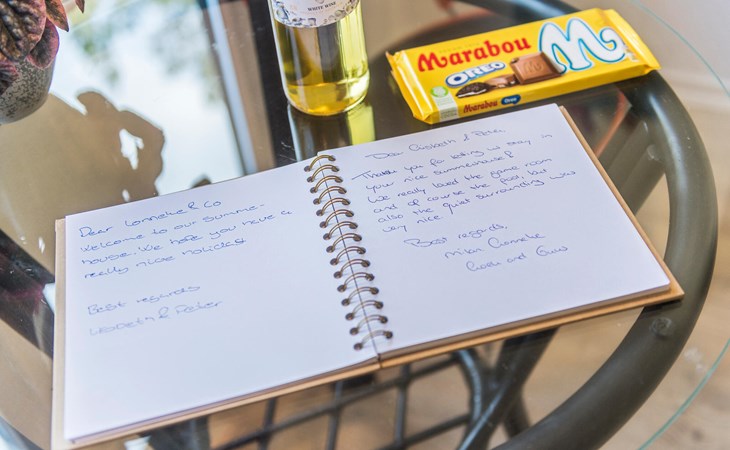 WHITE WINE
Marabou
OREO
M
Marabou
OREO
Dear Lonneke & Co
Welcome to our Summer-
house. We hope you have a
really nice holiday
Best regards
Lisbeth & Peter
Dear Lisbeth & Peter,
Thank you for letting us stay in
your nice summerhouse!
We really loved the game room
and of course the pool, but
also the quiet surrounding was
very nice.
Best regards,
Milan, Lonneke
and